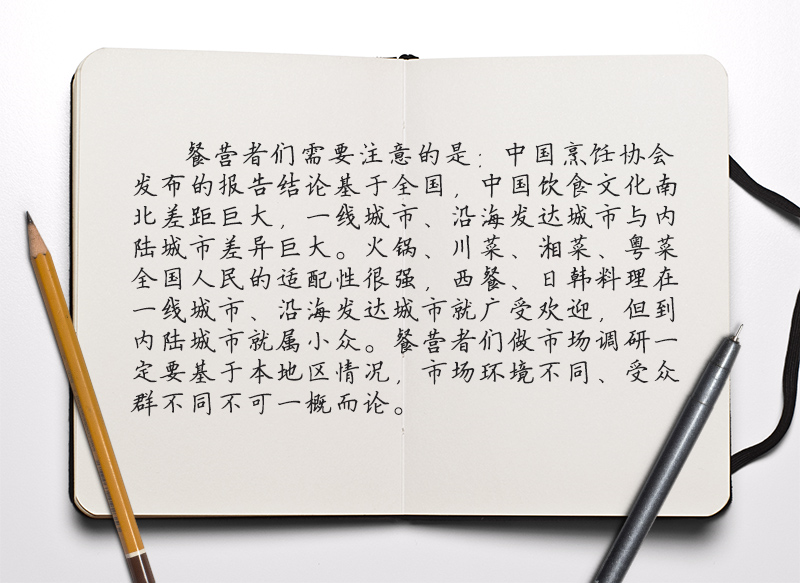 餐营者们需要注意的是：中国烹饪协会
发布的报告结论基于全国，中国饮食文化南
北差距巨大，一线城市、沿海发达城市与内
陆城市差异巨大。火锅、川菜、湘菜、粤菜
全国人民的适配性很强，西餐、日韩料理在
一线城市、沿海发达城市就广受欢迎，但到
内陆城市就属小众。餐营者们做市场调研一
定要基于本地区情况，市场环境不同、受众
群不同不可一概而论。